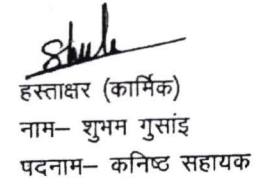 हस्ताक्षर (कार्मिक)
नाम– शुभम गुसांइ
पदनाम– कनिष्ठ सहायक